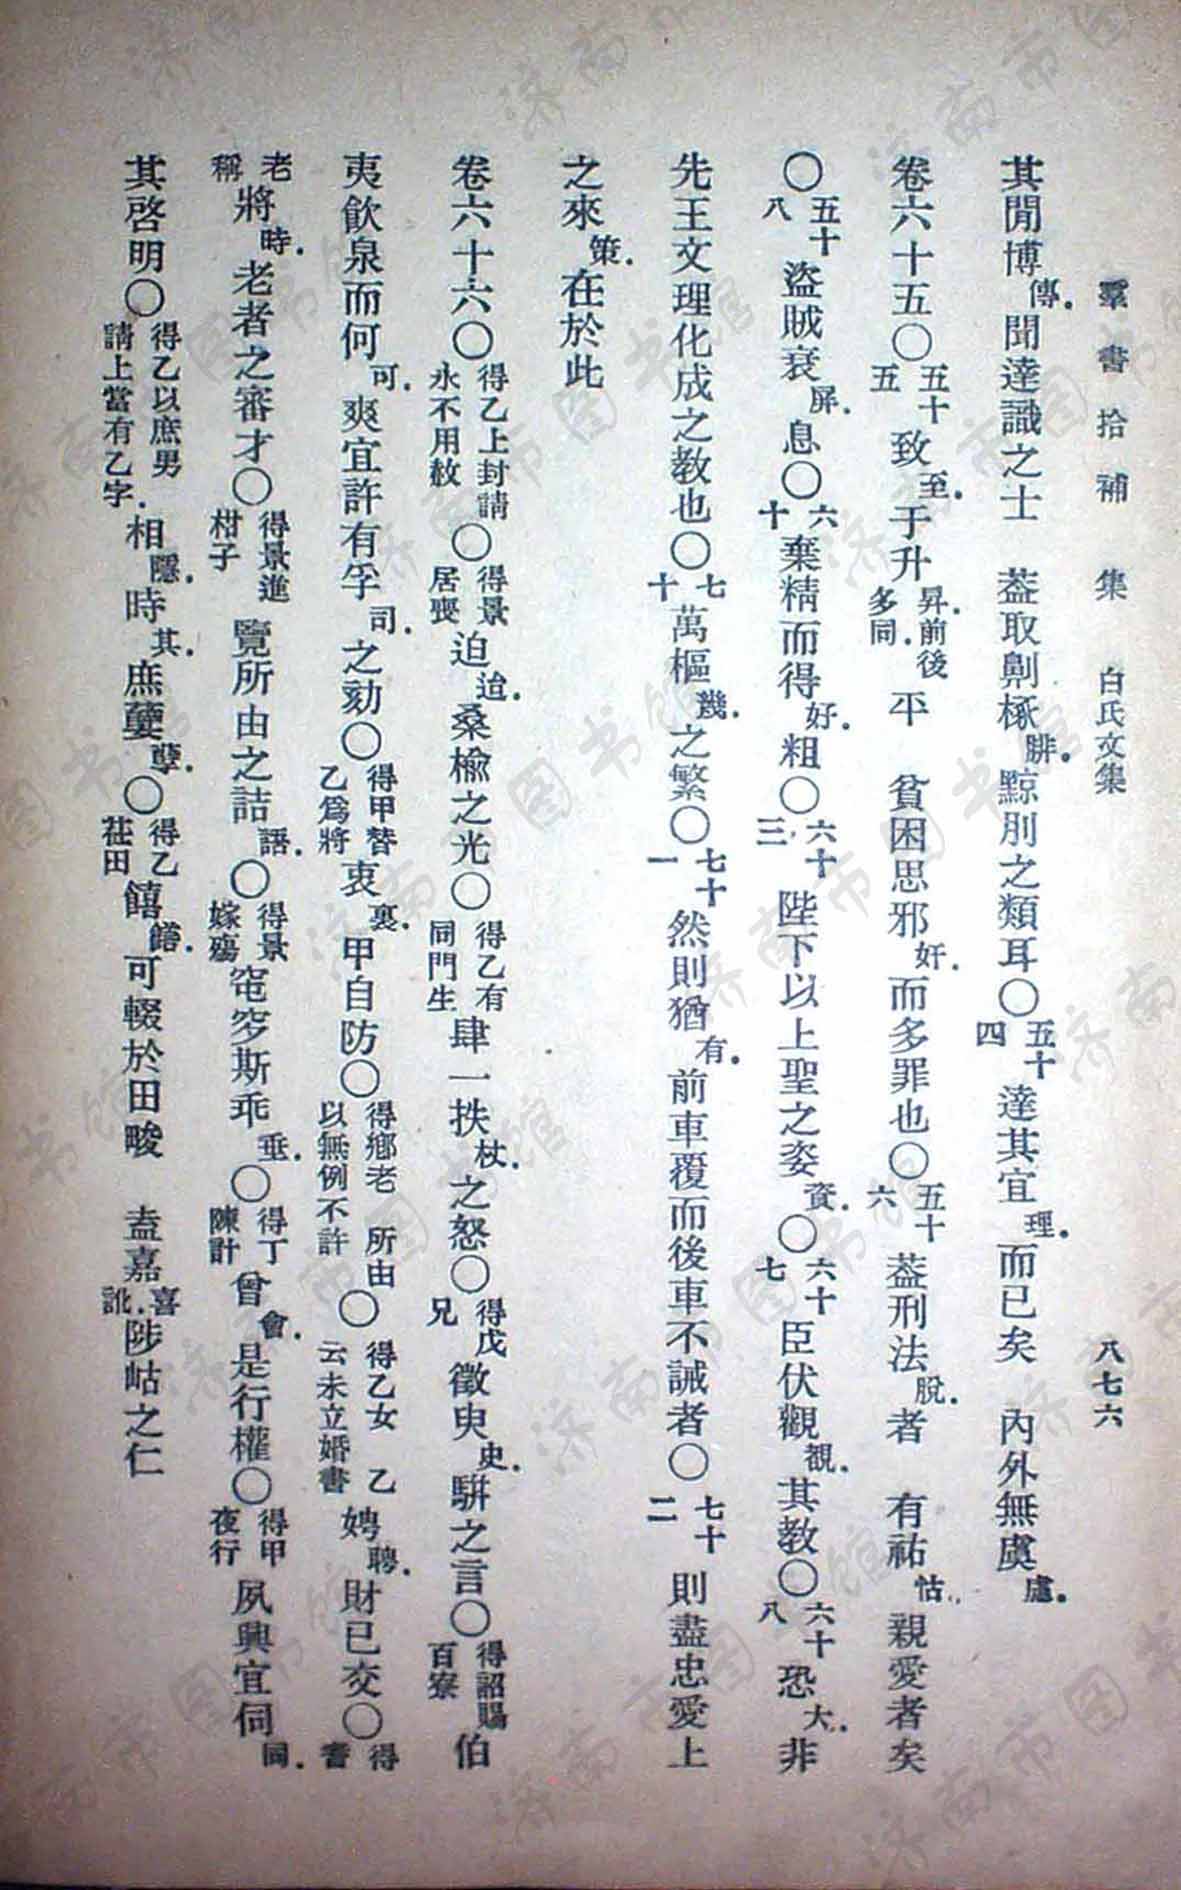 羣書拾補　集　白氏文集　八七六
其閒博傳聞達識之士　葢取劓椓腓黥刖之類耳〇五十四達其宜理而已矣　內外無虞慮
卷六十五〇五十五致至于升昇前後多同平　貧困思邪奸而多罪也〇五十六葢刑法脫者　有祐怙親愛者矣
〇五十八盜賊衰屏息〇六十棄精而得好粗〇六十三陛下以上聖之姿資〇六十七臣伏觀覩其教〇六十八恐大非
先王文理化成之教也〇七十萬樞幾之繁〇七十一然則猶有前車覆而後車不誡者〇七十二則盡忠愛上
之來策在於此
卷六十六〇得乙上封請永不用赦〇得景居喪迫迨桑榆之光〇得乙有同門生肆一抶杖之怒〇得戊兄徵臾史騈之言〇得詔賜百寮伯
夷飲泉而何可爽宜許有孚司之劾〇得甲替乙爲將衷裏甲自防〇得鄉老　所由以無例不許〇得乙女　乙云未立婚書娉聘財已交〇得耆
老稱將時老者之審才〇得景進柑子覽所由之詰語〇得景嫁殤窀穸斯乖垂〇得丁陳計曾會是行權〇得甲夜行夙興宜伺同
其啓明〇得乙以庶男請上當有乙字相隱時其庶孽〇得乙莊田饎饍可輟於田畯　盍嘉喜訛陟岵之仁